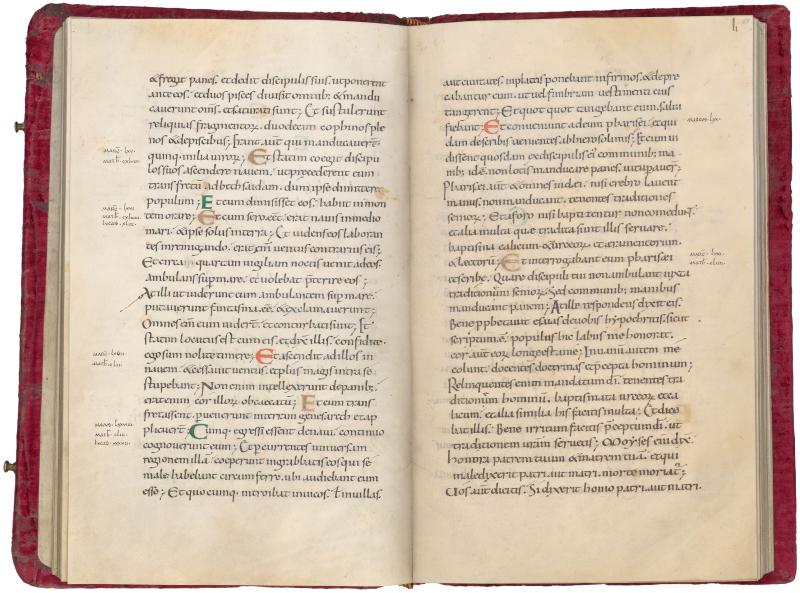 &fregit panes. et dedit discipulis suis. ut ponerent
ante eos. et duos pisces divisit omnib; &mandu
caverunt om̄s. et saturati sunt; Et sustulerunt
reliquias fragmentorū. duodecim cophinos ple
nos &depiscibus; Erant aūt qui manducaverūt
quinq; milia virorū; Et statim coegit discipu
los suos ascendere navem. ut precederent eum
trans fretū ad bethsaidam. dum ipse dimitteret
populum; Et cum dimisisset eos. habiit in mon
tem orare; Et cum sero eēt. erat navis in medio
mari. &ipse solus in terra; Et videns eos laboran
tes in remigando. erat eīm ventus contrarius eis;
Et circa quartam vigiliam noctis venit ad eos.
ambulans sup mare. et volebat p̄terire eos;
At illi ut viderunt eum ambulantem sup mare.
putaverunt fantasma eē. &exclamaverunt;
Omnes enī eum viderī. et conturbati sunt; Et
statim locutus est cum eis. et dix̄ illis. confidite
ego sum nolite timere; Et ascendit ad illos in
navem. &cessavit ventus. et plus magis intra se
stupebant; Non enim intellexerunt de panib;
erat enim cor illorū obcecatū; Et cum trans
fretassent. pervenerunt in terram genesareth. et ap
plicuerī; Cumq; egressi essent de navi. continuo
cognoverunt eum; Et percurrentes universam
regionem illā. coeperunt in grabbatis eos qui se
male habebant circum ferre. ubi audiebant eum
esse; Et quocumq; introibat in vicos. ł in villas.
aut civitates. in plateis ponebant infirmos. &depre
cabantur eum. ut vel fimbriam vestimenti eius
tangerent; Et quot quot tangebant eum. salvi
fiebant; Et conveniunt ad eum pharisei. et qui
dam de scribis venientes ab hierosolimis; Et cum vi
dissent quosdam ex discipulis ei' communib; ma
nib; id ē non lotis manducare panes. vituperaver̄;
Pharisei aūt &omnes iudei. nisi crebro lavent
manus. non manducant. tenentes traditiones
seniorū; Et a foro nisi baptizentur non comedunt.
et alia multa que tradita sunt illis servare.
baptisma calicum &urceorū. et eramentorum.
&lectorū; Et interrogabant eum pharisei
et scribe. Quare discipuli tui non ambulant iuxta
traditionem seniorū. Sed communib; manibus
manducant panem; At ille respondens dixit eis.
Bene pphetavit esaias de vobis hypochritis. sicut
scriptum ē. populus hic labiis me honorat.
cor aūt eorū longe est a me; In vanū autem me
colunt. docentes doctrinas et p̄cepta hominum;
Relinquentes enim mandatum dī. tenentes tra
ditionem hominū. baptismata urceorū et ca
licum. et alia similia his facitis multa; Et dice
bat illis. Bene irritum facitis p̄ceptum dī. ut
traditionem vrām servetis; Moyses enī dix̄
honora patrem tuum &matrem tuā. et qui
maledixerit patri. aut matri. morte moriat;
Vos aūt dicitis. Si dixerit homo patri. aut matri.